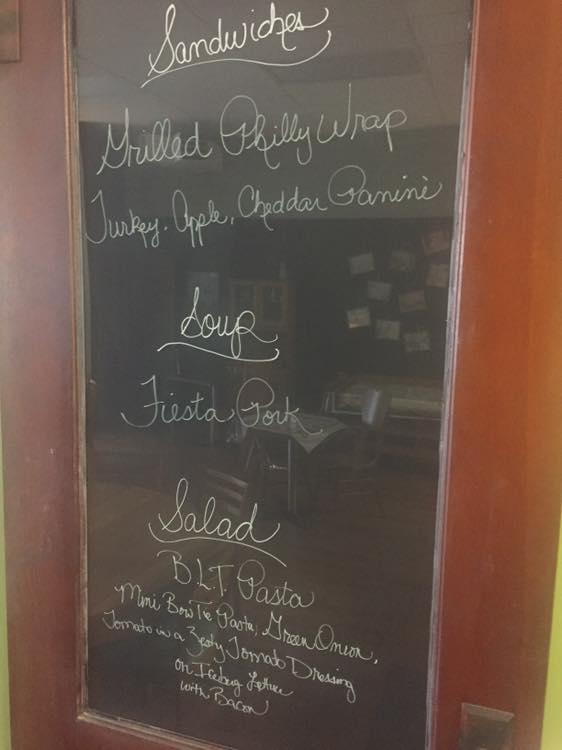 Sandwiches
Grilled Philly Wrap
Turkey, Apple, Cheddar Panini
Soup
Fiesta Pork
Salad
B.L.T. Pasta
Mini Bow Tie Pasta, Green Onion,
Tomato in a Zesty Tomato Dressing
on Iceberg Lettuce
with Bacon